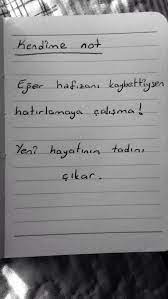 Kendime not
Eğer hafızanı kaybettiysen
hatırlamaya çalışma!
Yeni hayatının tadını
çıkar.